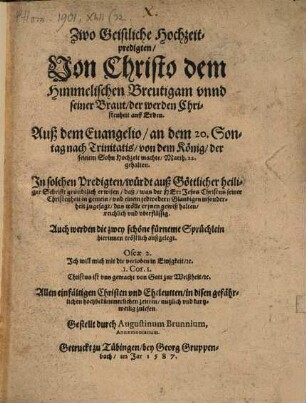 X.
Zwo Geistliche Hochzeit-
predigten/
Von Christo dem
Himmelischen Breutigam vnnd
seiner Braut/der werden Chri-
stenheit auff Erden.
Auß dem Euangelio/an dem 20. Son-
tag nach Trinitatis/von dem König/der
seinem Sohn Hochzeit machte/Matth. 22.
gehalten.
In solchen Predigten/würdt auß Göttlicher heili-
ger Schrifft gründtlich erwisen/daß/was der HErr Jesus Christus seiner
Christenheit in gemein/vnd einem jedwedern Glaubigen insonder-
heit zugesagt/das wölle er jnen gewiß halten/
reichlich vnd vberflüssig.
Auch werden die zwey schöne fürneme Sprüchlein
hierinnen tröstlich außgelegt.
Oseæ 2.
Ich will mich mit dir verloben in Ewigkeit/etc.
1. Cor. 1.
Christus ist vns gemacht von Gott zur Weißheit/etc.
Allen einfältigen Christen vnd Eheleutten/in disen gefähr-
lichen zeiten/nutzlich vnd kurtz-
weilig zulesen.
Gestellt durch Augustinum Brunnium,
Annemontanum.
Getruckt zu Tübingen/bey Georg Gruppen-
bach/im Jar 1587.